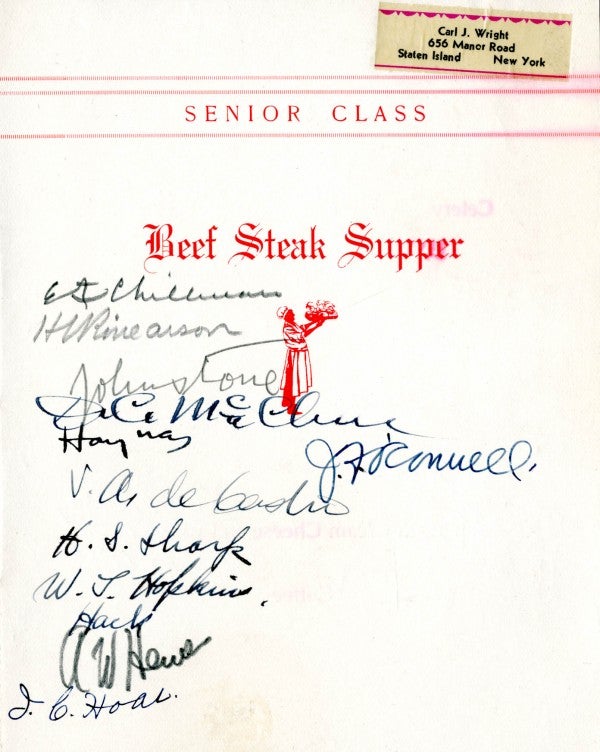 Carl J. Wright
656 Manor Road
Staten Island New York
SENIOR CLASS
Beef Steak Supper
E A Chillman
H L Rinearson
Johnstone
McClure
Haynay
J. F. O'Connell.
V. A. de Castro
H. S. Sharp
W. J. Hopkins.
Hack
A W Hewe
J. C. Hoar.